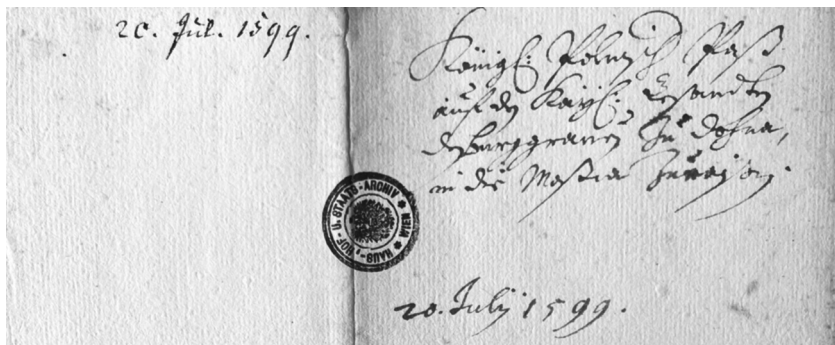 20. Jul. 1599.
Königl: Polnisch Paß
auf den Kayl: Gesandten
den Burggraven Zu Dohna,
in die Moßcua Zu raisen.
HAUS-, HOF- U. STAATS-ARCHIV WIEN
20. July 1599.